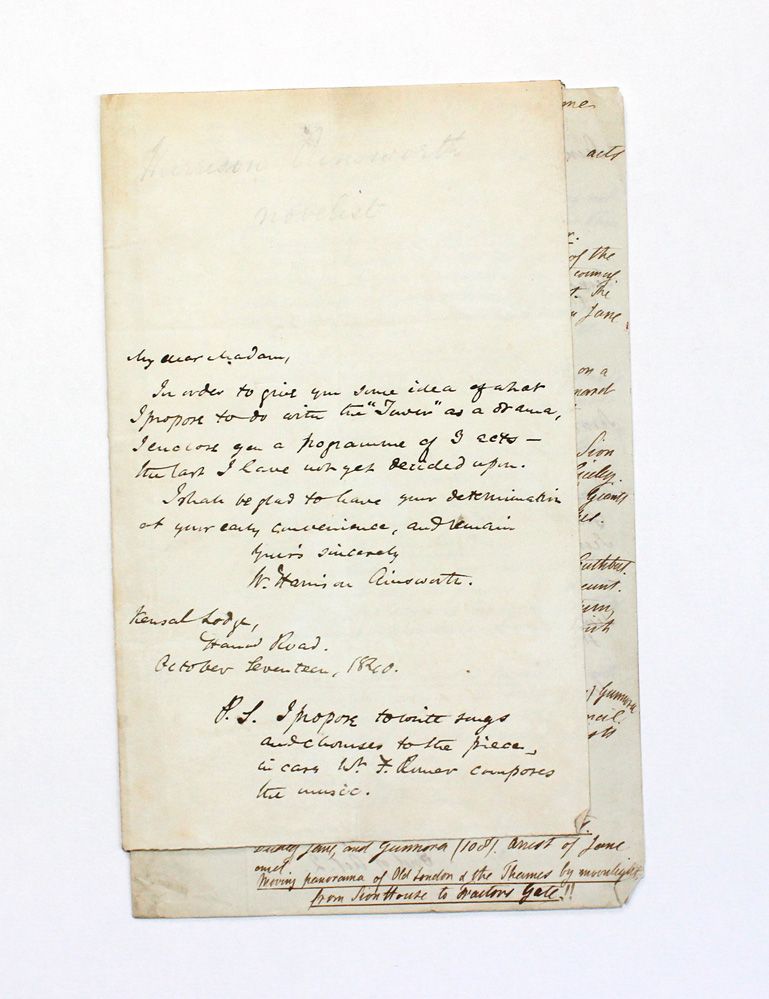 Harrison Ainsworth
novelist
My dear Madam,
In order to give you some idea of what
I propose to do with the "Tower" as a drama,
I enclose you a programme of 3 acts —
the last I have not yet decided upon.
I shall be glad to have your determination
at your early convenience, and remain
Your's sincerely
W. Harrison Ainsworth.
Kensal Lodge,
Harrow Road.
October Seventeen, 1840.
P.S. I propose to write songs
and choruses to the piece,
in case Mr. F. Romer composes
the music.
me
acts
of the
council
The
Jane
on a
Sion
Giants
Cuthbert
Gunnora
Jane, and Gunnora (108). Arrest of Jane
and
Moving panorama of Old London & the Thames by moonlight,
from Sion House to Traitors Gate!!